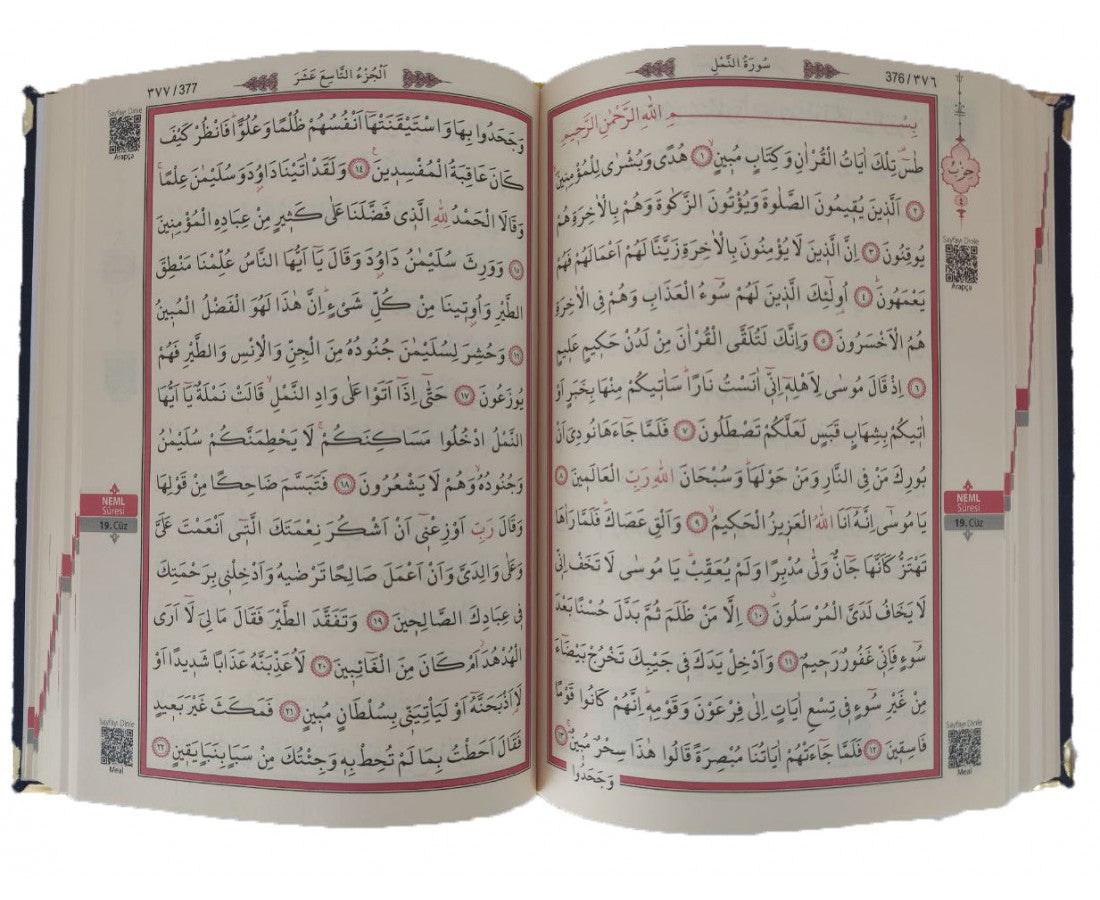 376/٣٧٦
سُورَةُ النَّمْلِ
بِسْمِ اللهِ الرَّحْمٰنِ الرَّحٖيمِ
طٰسٓ تِلْكَ اٰيَاتُ الْقُرْاٰنِ وَكِتَابٍ مُبٖينٍۙ ﴿١﴾ هُدًى وَبُشْرٰى لِلْمُؤْمِنٖينَۙ
﴿٢﴾ اَلَّذٖينَ يُقٖيمُونَ الصَّلٰوةَ وَيُؤْتُونَ الزَّكٰوةَ وَهُمْ بِالْاٰخِرَةِ هُمْ
يُوقِنُونَ ﴿٣﴾ اِنَّ الَّذٖينَ لَا يُؤْمِنُونَ بِالْاٰخِرَةِ زَيَّنَّا لَهُمْ اَعْمَالَهُمْ فَهُمْ
يَعْمَهُونَؕ ﴿٤﴾ اُو۬لٰٓئِكَ الَّذٖينَ لَهُمْ سُٓوءُ الْعَذَابِ وَهُمْ فِى الْاٰخِرَةِ
هُمُ الْاَخْسَرُونَ ﴿٥﴾ وَاِنَّكَ لَتُلَقَّى الْقُرْاٰنَ مِنْ لَدُنْ حَكٖيمٍ عَلٖيمٍ
﴿٦﴾ اِذْ قَالَ مُوسٰى لِاَهْلِهٖٓ اِنّٖٓى اٰنَسْتُ نَارًاؕ سَاٰتٖيكُمْ مِنْهَا بِخَبَرٍ اَوْ
اٰتٖيكُمْ بِشِهَابٍ قَبَسٍ لَعَلَّكُمْ تَصْطَلُونَ ﴿٧﴾ فَلَمَّا جَٓاءَهَا نُودِىَ اَنْ
بُورِكَ مَنْ فِى النَّارِ وَمَنْ حَوْلَهَاؕ وَسُبْحَانَ اللهِ رَبِّ الْعَالَمٖينَ ﴿٨﴾
يَا مُوسٰٓى اِنَّهُٓ اَنَا اللهُ الْعَزٖيزُ الْحَكٖيمُۙ ﴿٩﴾ وَاَلْقِ عَصَاكَؕ فَلَمَّا رَاٰهَا
تَهْتَزُّ كَاَنَّهَا جَٓانٌّ وَلّٰى مُدْبِرًا وَلَمْ يُعَقِّبْؕ يَا مُوسٰى لَا تَخَفْ اِنّٖى
لَا يَخَافُ لَدَىَّ الْمُرْسَلُونَۗ ﴿١٠﴾ اِلَّا مَنْ ظَلَمَ ثُمَّ بَدَّلَ حُسْنًا بَعْدَ
سُٓوءٍ فَاِنّٖى غَفُورٌ رَحٖيمٌ ﴿١١﴾ وَاَدْخِلْ يَدَكَ فٖى جَيْبِكَ تَخْرُجْ بَيْضَٓاءَ
مِنْ غَيْرِ سُٓوءٍ فٖى تِسْعِ اٰيَاتٍ اِلٰى فِرْعَوْنَ وَقَوْمِهٖؕ اِنَّهُمْ كَانُوا قَوْمًا
فَاسِقٖينَ ﴿١٢﴾ فَلَمَّا جَٓاءَتْهُمْ اٰيَاتُنَا مُبْصِرَةً قَالُوا هٰذَا سِحْرٌ مُبٖينٌۚ ﴿١٣﴾
وَجَحَدُوا
حِزْب
٤
Sayfayı Dinle
Arapça
NEML
Sûresi
19. Cüz
Sayfayı Dinle
Meal
٣٧٧/377
اَلْجُزْءُ التَّاسِعَ عَشَرَ
وَجَحَدُوا بِهَا وَاسْتَيْقَنَتْهَٓا اَنْفُسُهُمْ ظُلْمًا وَعُلُوًّاؕ فَانْظُرْ كَيْفَ
كَانَ عَاقِبَةُ الْمُفْسِدٖينَ۟ ﴿١٤﴾ وَلَقَدْ اٰتَيْنَا دَاوُ۫دَ وَسُلَيْمٰنَ عِلْمًاۚ
وَقَالَا الْحَمْدُ لِلهِ الَّذٖى فَضَّلَنَا عَلٰى كَثٖيرٍ مِنْ عِبَادِهِ الْمُؤْمِنٖينَ
﴿١٥﴾ وَوَرِثَ سُلَيْمٰنُ دَاوُ۫دَ وَقَالَ يَٓا اَيُّهَا النَّاسُ عُلِّمْنَا مَنْطِقَ
الطَّيْرِ وَاُو۫تٖينَا مِنْ كُلِّ شَىْءٍؕ اِنَّ هٰذَا لَهُوَ الْفَضْلُ الْمُبٖينُ
﴿١٦﴾ وَحُشِرَ لِسُلَيْمٰنَ جُنُودُهُ مِنَ الْجِنِّ وَالْاِنْسِ وَالطَّيْرِ فَهُمْ
يُوزَعُونَ ﴿١٧﴾ حَتّٰٓى اِذَٓا اَتَوْا عَلٰى وَادِ النَّمْلِۙ قَالَتْ نَمْلَةٌ يَٓا اَيُّهَا
النَّمْلُ ادْخُلُوا مَسَاكِنَكُمْۚ لَا يَحْطِمَنَّكُمْ سُلَيْمٰنُ
وَجُنُودُهُۙ وَهُمْ لَا يَشْعُرُونَ ﴿١٨﴾ فَتَبَسَّمَ ضَاحِكًا مِنْ قَوْلِهَا
وَقَالَ رَبِّ اَوْزِعْنٖٓى اَنْ اَشْكُرَ نِعْمَتَكَ الَّتٖٓى اَنْعَمْتَ عَلَىَّ
وَعَلٰى وَالِدَىَّ وَاَنْ اَعْمَلَ صَالِحًا تَرْضٰيهُ وَاَدْخِلْنٖى بِرَحْمَتِكَ
فٖى عِبَادِكَ الصَّالِحٖينَ ﴿١٩﴾ وَتَفَقَّدَ الطَّيْرَ فَقَالَ مَا لِىَ لَٓا اَرَى
الْهُدْهُدَۘ اَمْ كَانَ مِنَ الْغَٓائِبٖينَ ﴿٢٠﴾ لَاُعَذِّبَنَّهُ عَذَابًا شَدٖيدًا اَوْ
لَا۬اَذْبَحَنَّهُٓ اَوْ لَيَاْتِيَنّٖى بِسُلْطَانٍ مُبٖينٍ ﴿٢١﴾ فَمَكَثَ غَيْرَ بَعٖيدٍ
فَقَالَ اَحَطْتُ بِمَا لَمْ تُحِطْ بِهٖ وَجِئْتُكَ مِنْ سَبَأٍ بِنَبَأٍ يَقٖينٍ ﴿٢٢﴾
Sayfayı Dinle
Arapça
NEML
Sûresi
19. Cüz
Sayfayı Dinle
Meal